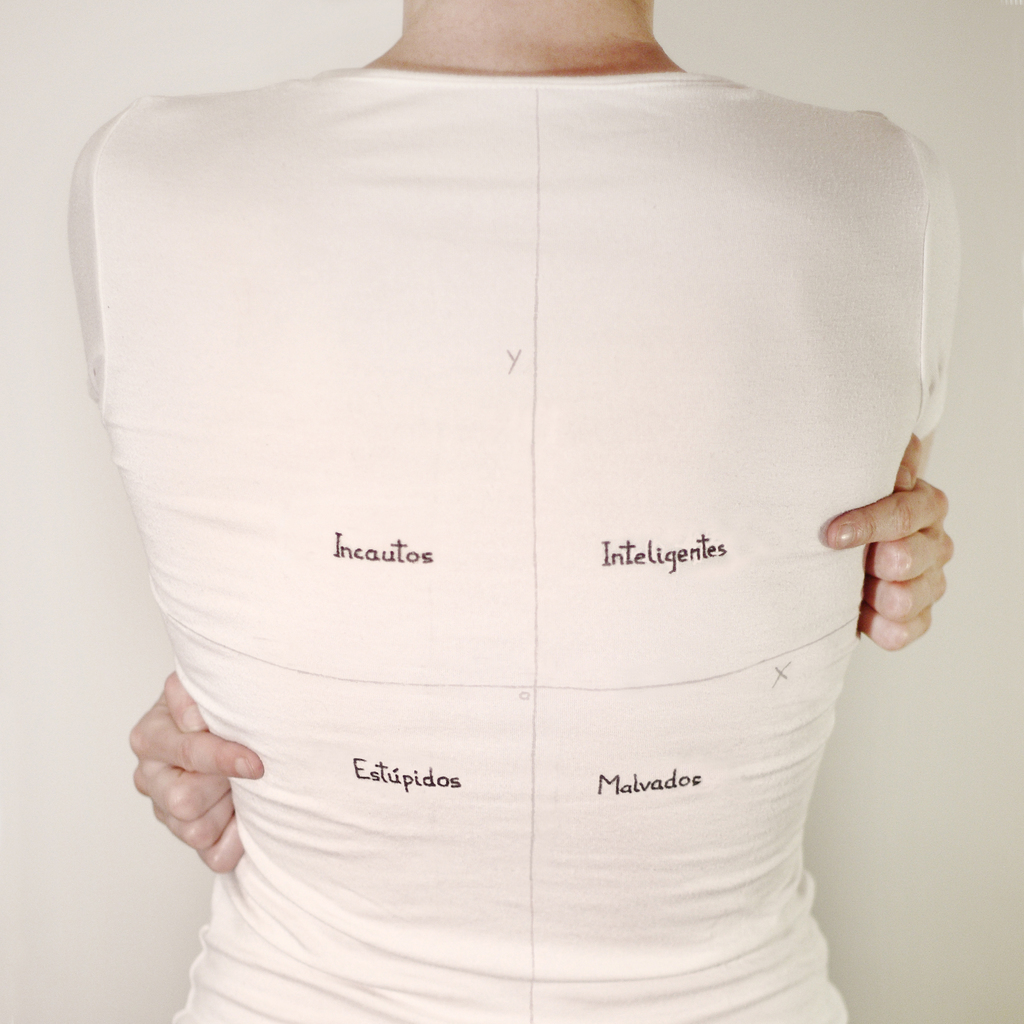 y
Incautos Inteligentes
x
o
Estúpidos Malvados